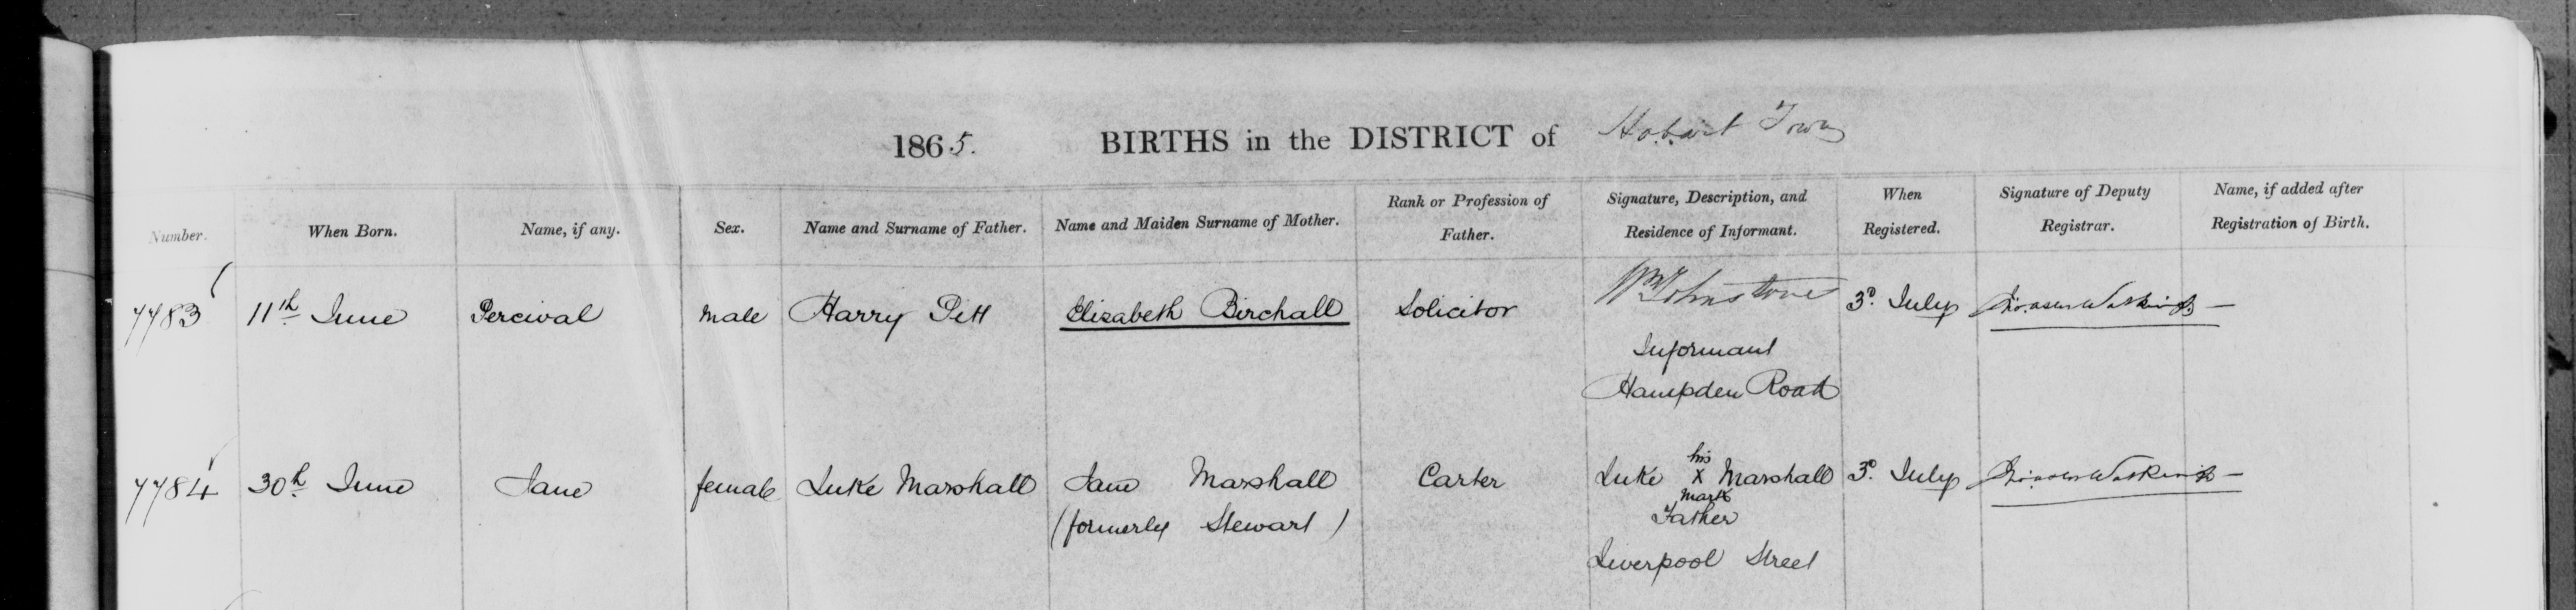 1865. BIRTHS in the DISTRICT of Hobart Town
Number. When Born. Name, if any. Sex. Name and Surname of Father. Name and Maiden Surname of Mother. Rank or Profession of Father. Signature, Description, and Residence of Informant. When Registered. Signature of Deputy Registrar. Name, if added after Registration of Birth.
7783 11th June Percival male Harry Pitt Elizabeth Birchall Solicitor Wm Johnstone 3d. July —
Informant
Hampden Road
7784 30th June Jane female Luke Marshall Jane Marshall Carter Luke his X mark Marshall 3d. July —
(formerly Stewart) Father
Liverpool Street